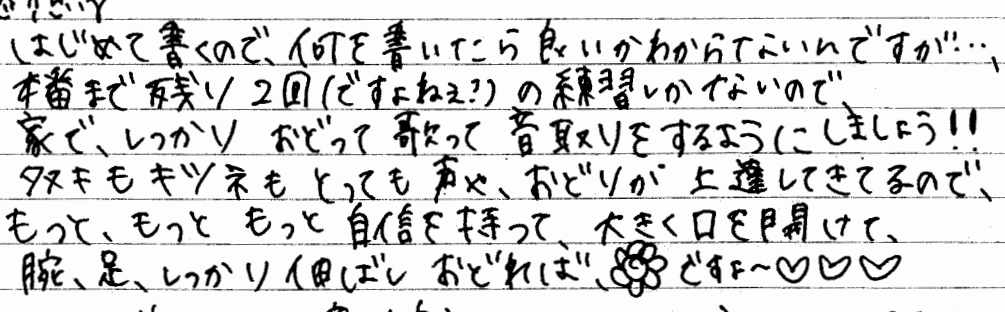 はじめて書くので、何を書いたら良いかわからないんですが…、
本番まで残り2回(ですよねぇ?)の練習しかないので、
家で、しっかり おどって 歌って 音取りをするようにしましょう!!
タヌキもキツネも とっても 声や、おどりが 上達してきてるので、
もっと、もっと もっと 自信を持って、大きく口を開けて、
腕、足、しっかり伸ばし おどれば、ですよ~♡♡♡